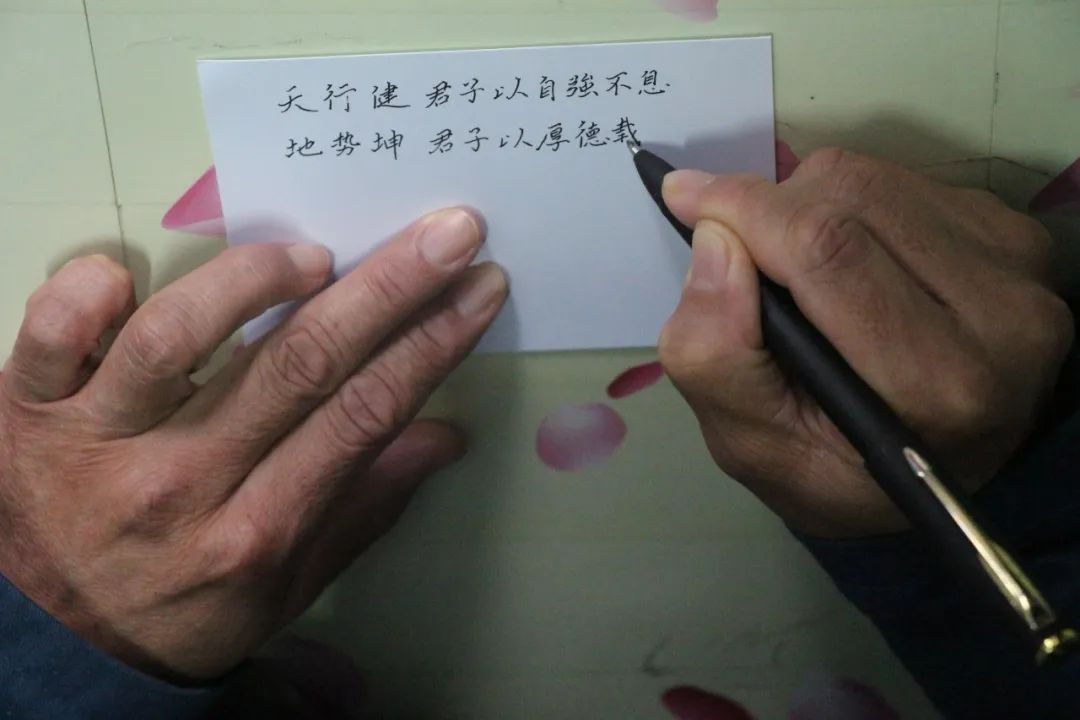 天行健 君子以自強不息
地势坤 君子以厚德载